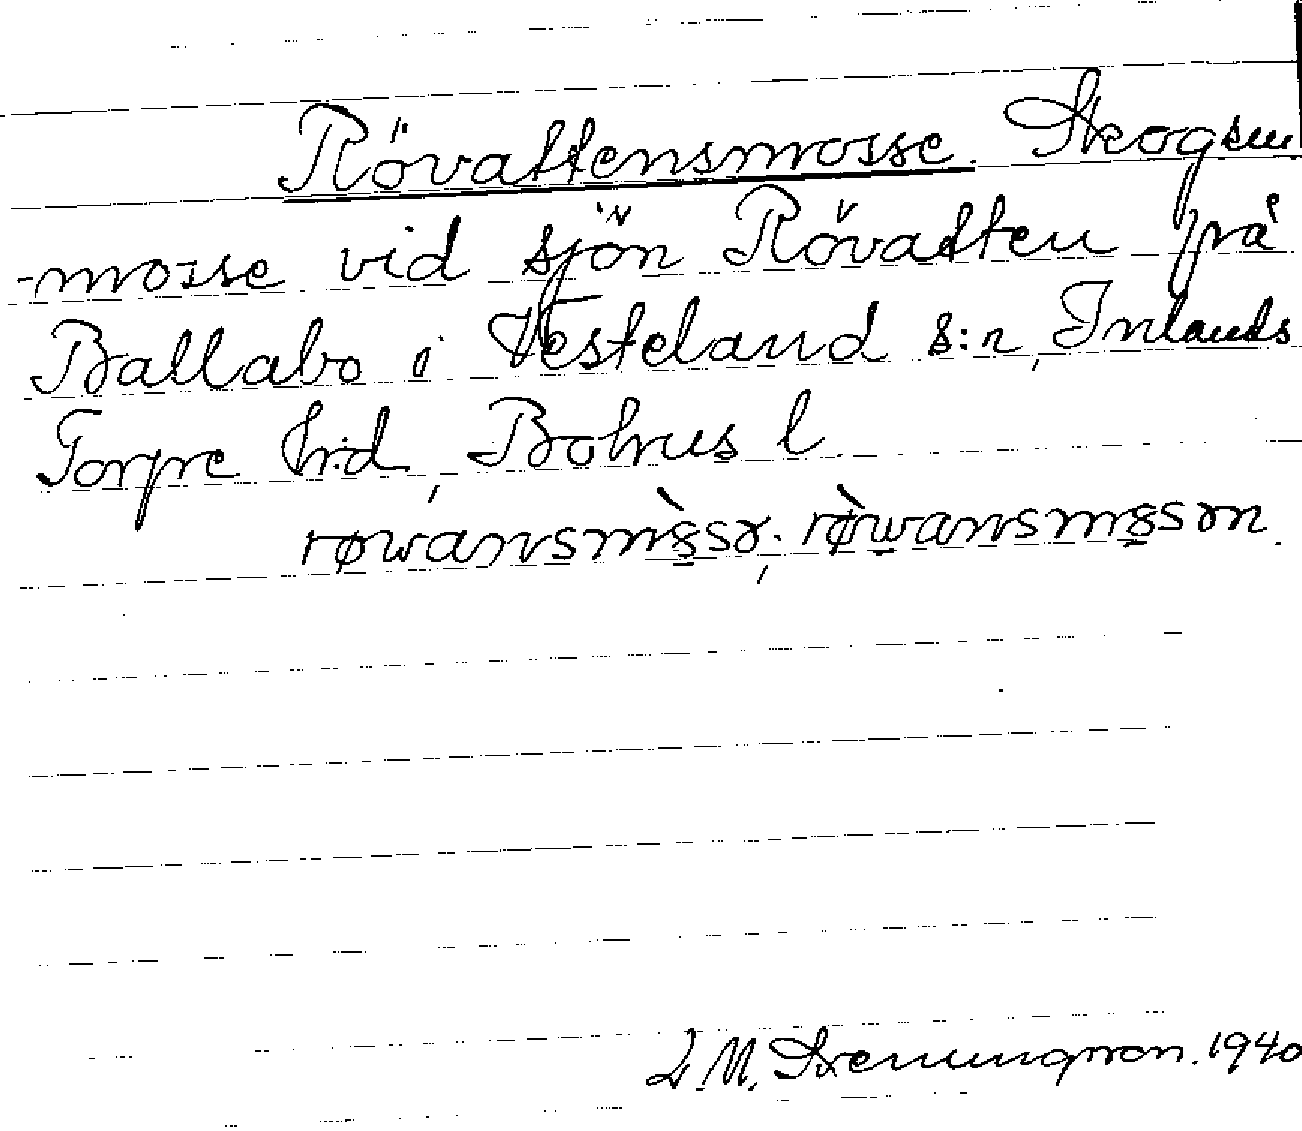 Rövattensmosse. Skogsm
-mosse vid sjön Rövatten på
Ballabo i Vesterland s:n, Inlands
Torpe hrd, Bohus l
røwansmèssə; røwansmèssən.
J. M. 1940